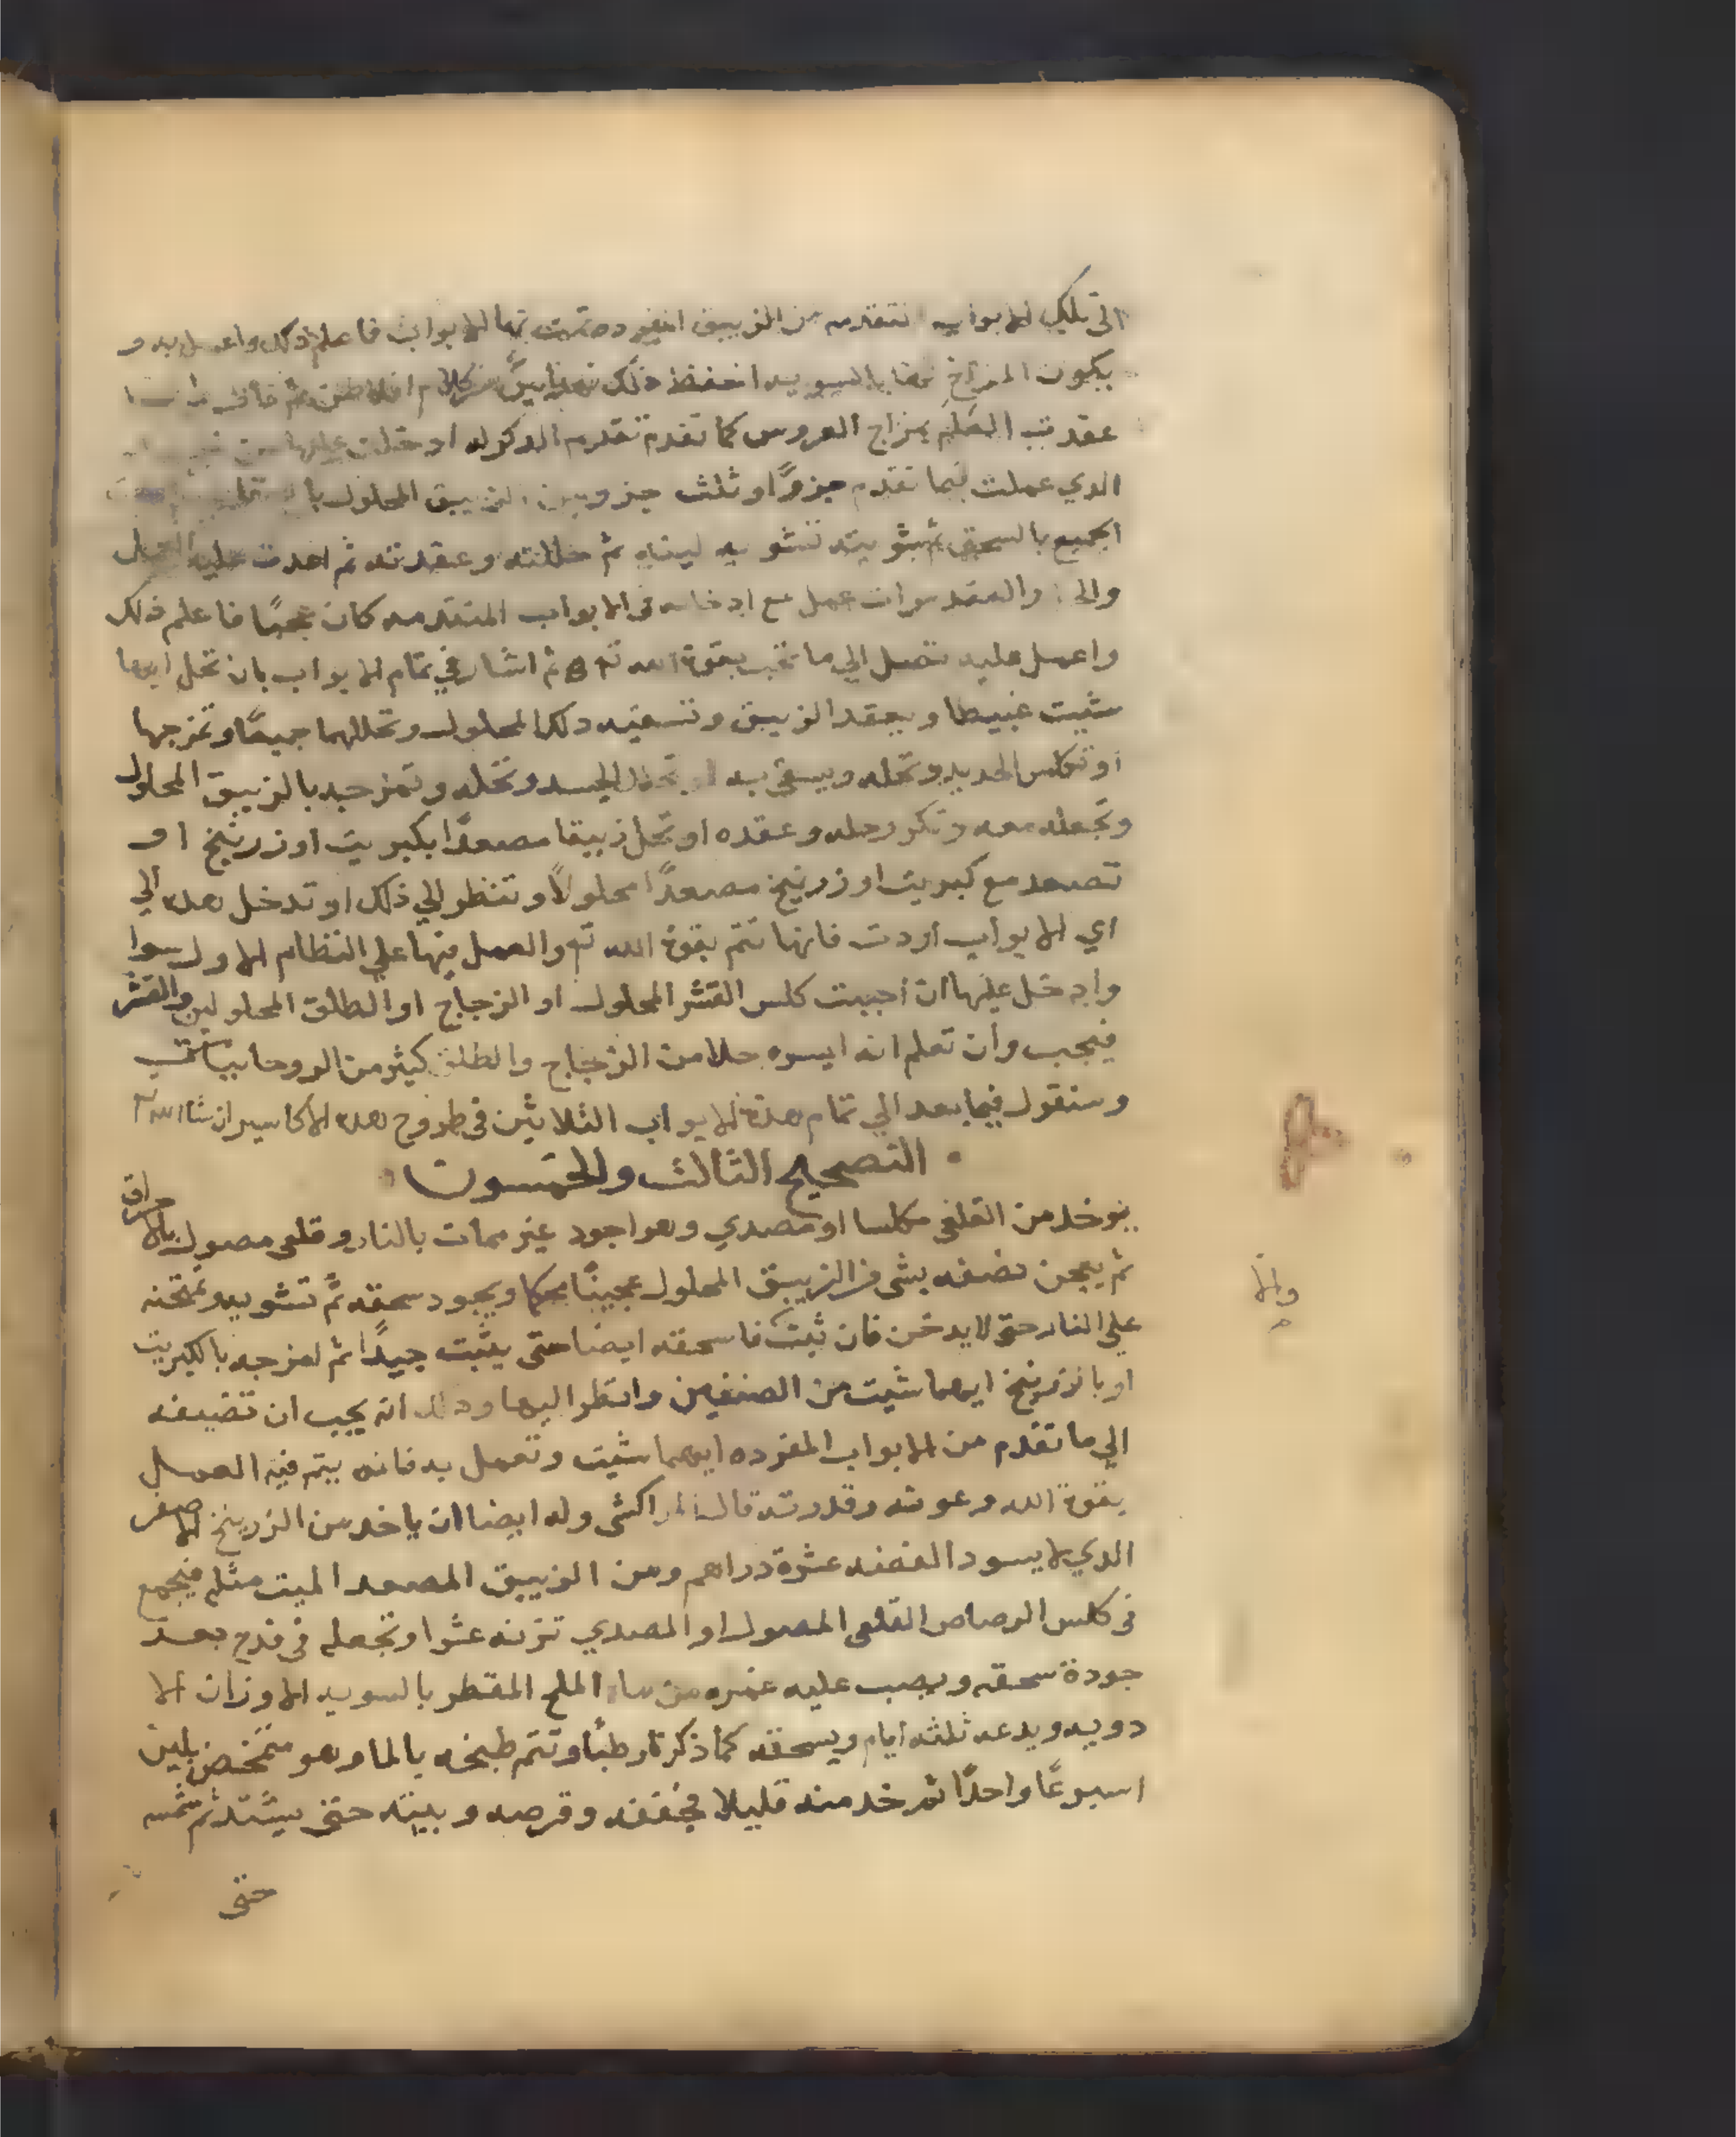 الى تلك الابواب المتقدمه من الزيبق المفرده تمت بها الابواب فاعلم ذلك واعمل به و
يكون المزاج بالسويه احفظ ذلك من كلام
عقدت العلم بمزاج العروس كما تقدم تقدم الدكر له ادخلت عليها من
الدي عملت فيما تقدم جزوًا وثلث جزو من الزيبق المحلول
الجميع بالسحق ثم شويته تشويه لينه ثم حللته وعقدته ثم اعدت عليه العمل
والحل والعقد سوا وان عمل مع ادخاله في الابواب المتقدمه كان عجبًا فاعلم ذلك
واعمل عليه تصل الي ما تحب بقوة الله تع ثم اشار في تمام الابواب بان تحل ايها
شيت عبيطا ويعقد الزيبق وتسقيه دلك المحلول وتحللهما جميعًا وتمزجها
او تكلس الحديد وتحله ويسقى به او الجسد وتحله وتمزجه بالزيبق المحلول
وتجعله معه وتكرر حله وعقده او تحل زيبقا مصعدًا بكبريت او زرنيخ او
تصعد مع كبريت او زرنيخ مصعدًا محلولًا وتنظر الي ذلك او تدخل هده الي
اي الابواب اردت فانها تتم بقوة الله تع والعمل فيها علي النظام الاول سوا
وادخل عليها ان احببت كلس القشر المحلول او الزجاج او الطلق المحلولين والقشر
فيجب وان تعلم انه ايسره حلا من الزجاج والطلق كثير من الروحانيات
وسنقول فيما بعد الي تمام هدة الابواب الثلاثين في طروح هده الاكاسير ان شا الله تع
التصحيح الثالث والخمسون
يوخد من القلعي مكلسا او مصدي وهو اجود غير ممات بالنار وقلعي مصول بالاحراق
ثم يعجن نصفه بشى من الزيبق المحلول عجينًا محكما ويجود سحقه ثم تشويه وتمتحنه
علي النار حتى لا يدخن فان ثبت فاسحقه ايضا حتى يثبت جيدًا ثم امزجه بالكبريت
او بالزرنيخ ايهما شيت من الصنفين وانظر اليها ودلك انه يجب ان تضيفه
الي ما تقدم من الابواب المفرده ايهما شيت وتعمل به فانه يتم فيه العمل
بقوة الله وعونه وقدرته قال المراكشى وله ايضا ان ياخد من الزرنيخ الاصفر
الدي لا يسود الفضه عشرة دراهم ومن الزيبق المصعد الميت مثله فيجمع
في كلس الرصاص القلعي المصول او المصدي تزنه عشرا وتجعله في قدح بعد
جودة سحقه ويصب عليه غمره من ماء الملح المقطر بالسويه الاوزان الا
دويه ويدعه ثلثه ايام ويسحقه كما ذكر تا رطبًا وتتم طبخه بالما وهو متخضخض بلين
اسبوعًا واحدًا ثم خد منه قليلا فجففه وقرصه وبيته حتى يشتد ثم شمسه
حتى